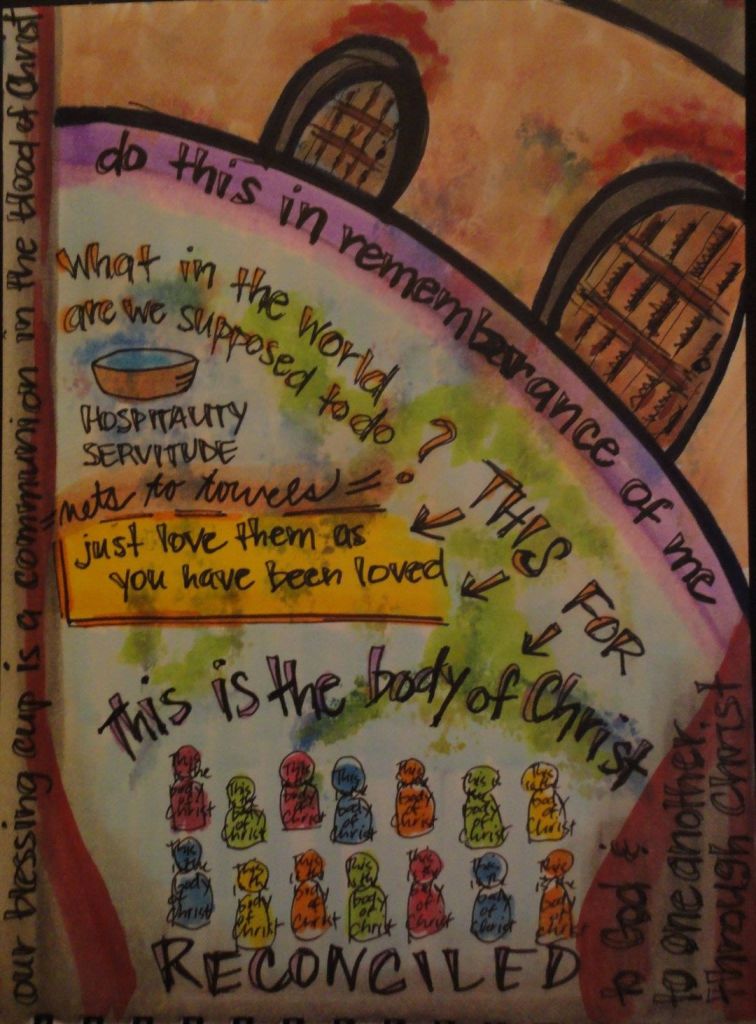 our blessing cup is a communion in the blood of Christ
do this in remembrance of me
What in the world
are we supposed to do
?
HOSPITALITY
SERVITUDE
= nets to towels =
just love them as
you have been loved
THIS FOR
this is the body of Christ
This is the body of Christ
This is the body of Christ
This is the body of Christ
This is the body of Christ
This is the body of Christ
This is the body of Christ
This is the body of Christ
This is the body of Christ
This is the body of Christ
This is the body of Christ
This is the body of Christ
This is the body of Christ
This is the body of Christ
This is the body of Christ
RECONCILED
to God &
to one another.
through Christ